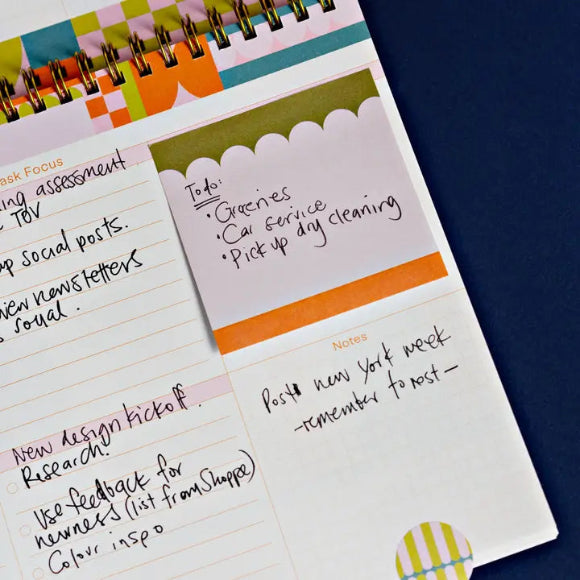 ask Focus
ing assessment
TOV
up social posts.
newsletters
social.
New design kickoff.
Research.
Use feedback for
newness (list from Shoppe)
Colour inspo
Todo:
• Groceries
• Car service
• Pick up dry cleaning
Notes
Post new york week
- remember to rest -